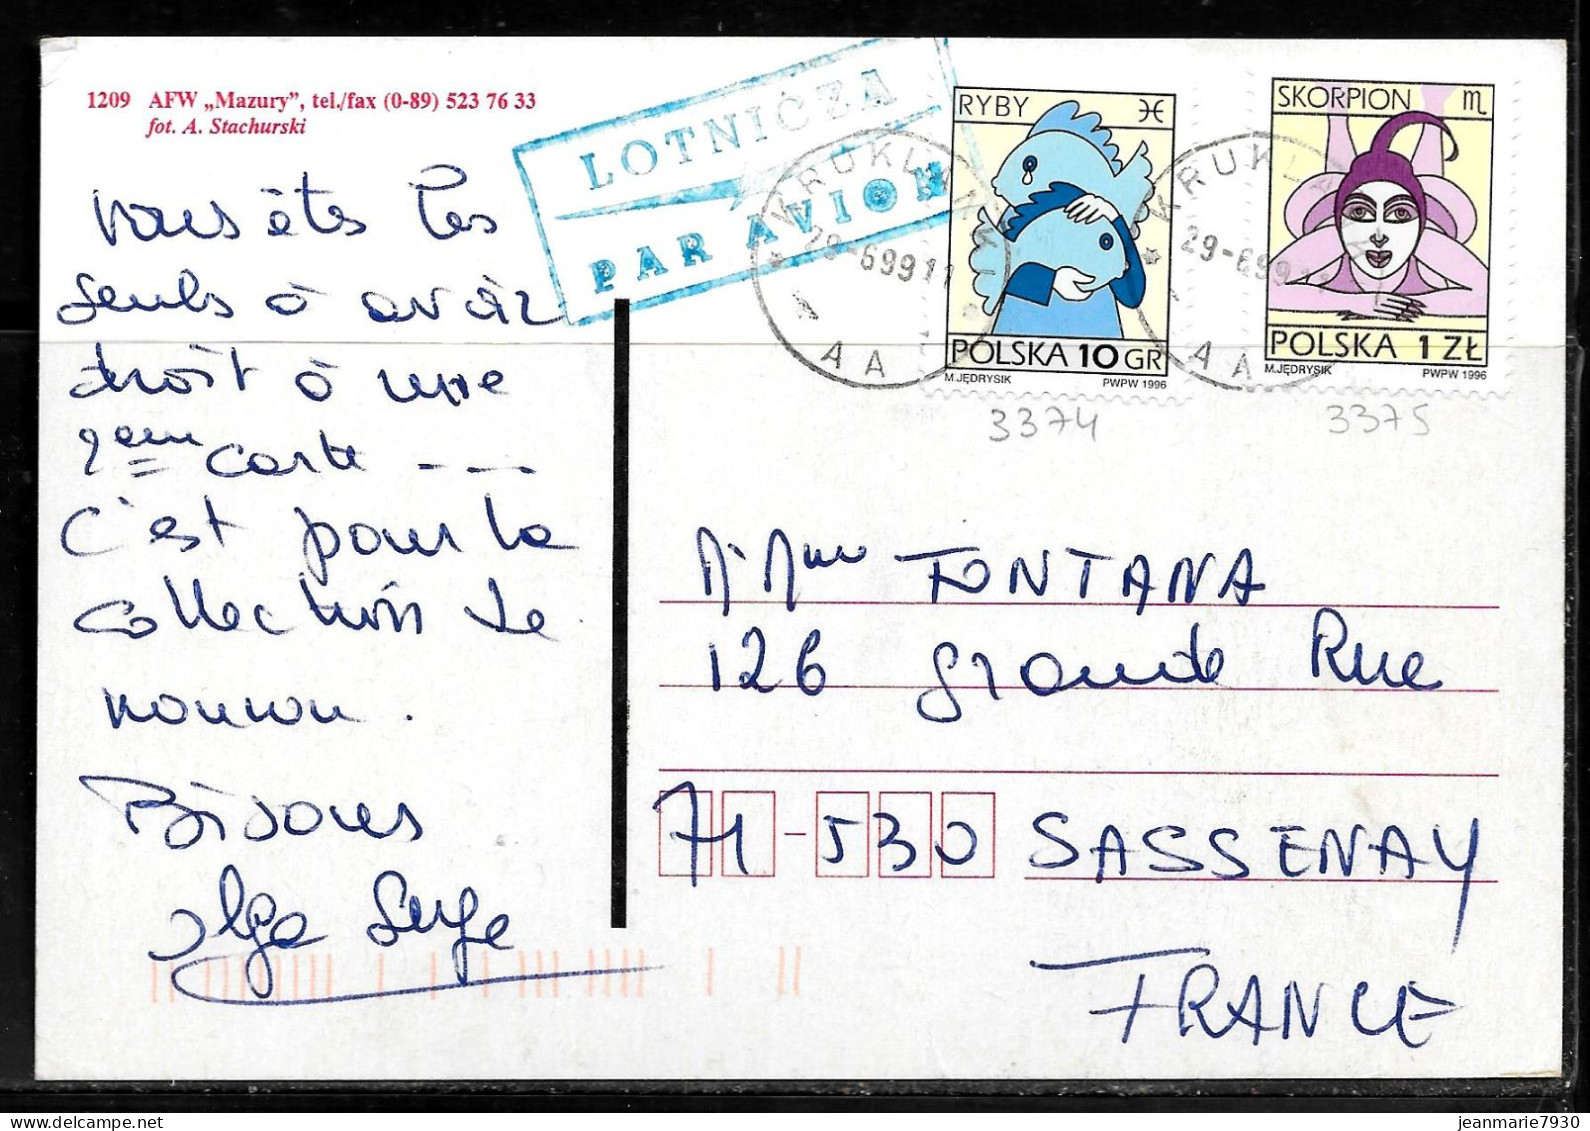 1209 AFW „Mazury”, tel./fax (0-89) 523 76 33
fot. A. Stachurski
LOTNICZA
PAR AVION
RYBY
POLSKA 10 GR
M.JĘDRYSIK PWPW 1996
SKORPION
POLSKA 1 ZŁ
M.JĘDRYSIK PWPW 1996
KRUKLANKI
29-699 11
A A
KRUKLA
29-699 11
A A
3374
3375
vous êtes les
seuls à avoir
droit à une
2eme carte ---
C'est pour la
collection de
nounou.
Bisous
Olga Serge
M. Mme FONTANA
126 grande Rue
71-530 SASSENAY
FRANCE
jeanmarie7930